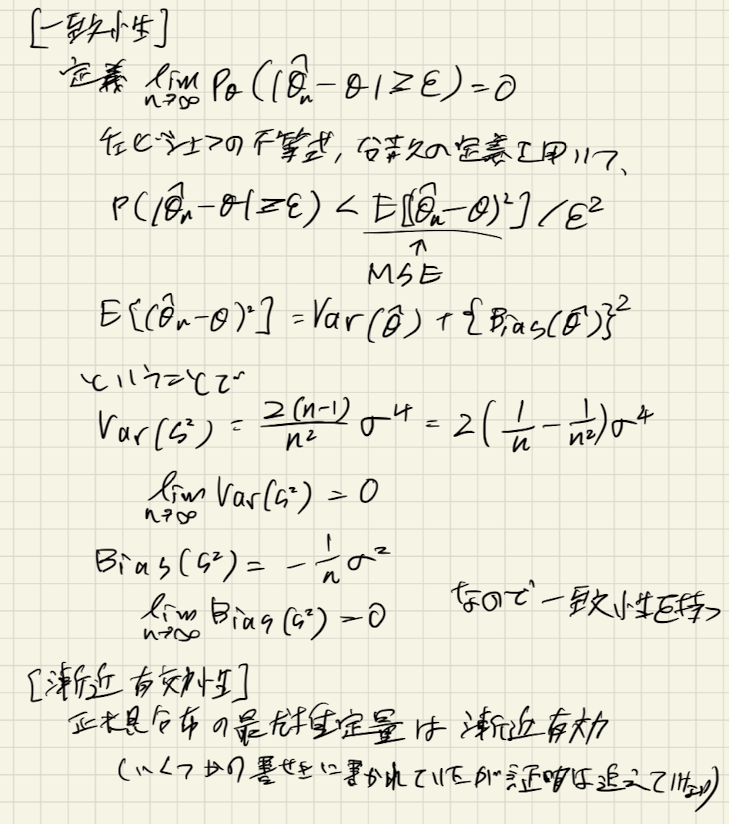 [一致性]
定義 lim_{n→∞} P_θ(|θ̂_n - θ| ≥ ε) = 0
チェビシェフの不等式, 分散の定義を用いて、
P(|θ̂_n - θ| ≥ ε) < E[(θ̂_n - θ)²] / ε²
↑
MSE
E[(θ̂_n - θ)²] = Var(θ̂) + {Bias(θ̂)}²
ということで
Var(S²) = 2(n-1)/n² σ⁴ = 2(1/n - 1/n²)σ⁴
lim_{n→∞} Var(S²) = 0
Bias(S²) = - 1/n σ²
lim_{n→∞} Bias(S²) = 0 なので一致性を持つ
[漸近有効性]
正規分布の最尤推定量は漸近有効
(いくつかの書籍に書かれていたが証明は追えていない)